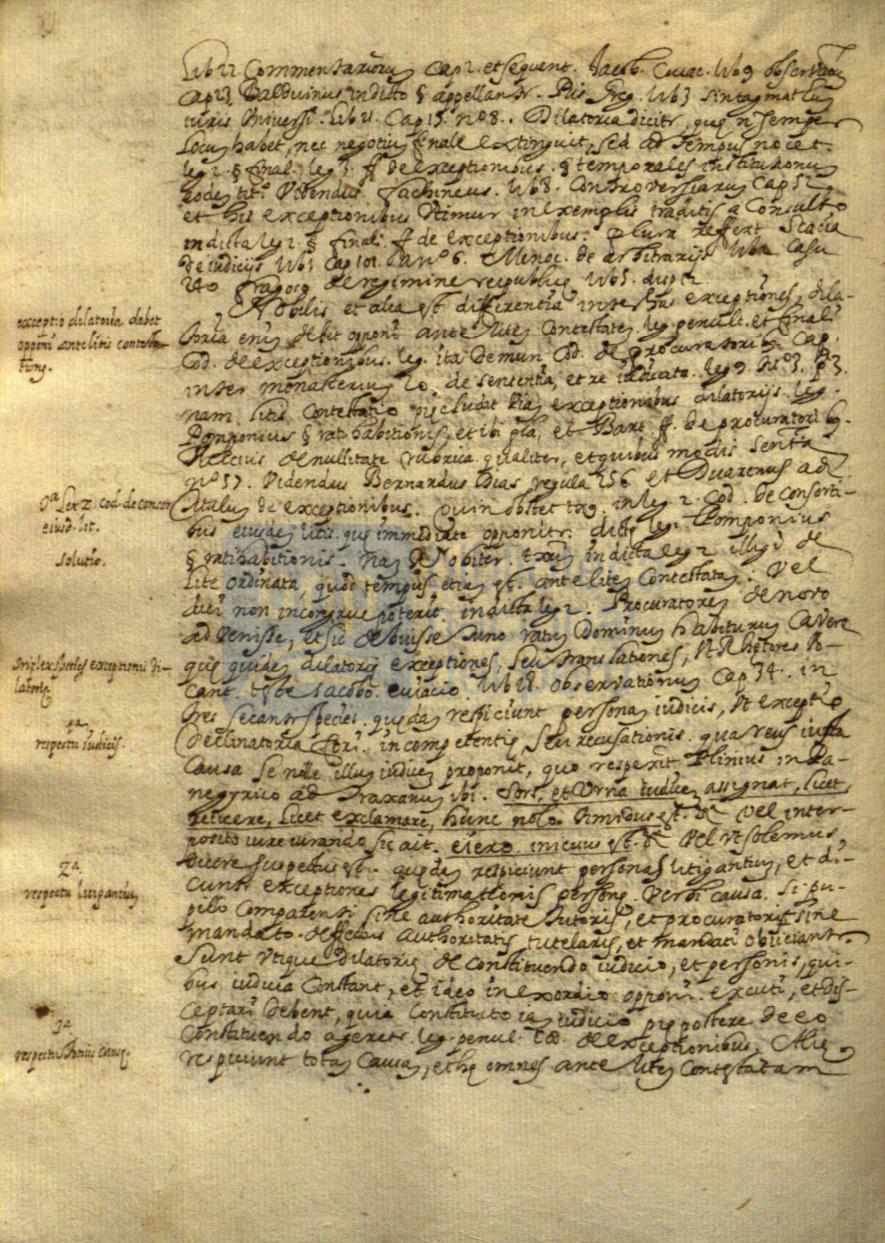 Lib 22 Commentariorũ Cap 2. et sequent. Jacob. Cuiac. Lib 9 observ
Cap 23 Balduinus in dicto § appellantr. Pet. Greg. Lib 3 sintagmatũ
iuris universi. Lib 21. Cap 15. nº 8.. Dilatoria dicitr, quę ñ semper
Locũ habet, nec negotiũ finale extinguit, sed ad tempus nocet.
leg 2. § final. leg 3. ff de exceptionibus. § temporales institutionũ
eodẽ titº. Videndus fachineus. Lib 8. Controversiarũ Cap 52
et his exceptionibus Utimur in exemplis traditis a Consulto
in dicta leg 2. § final. ff de exceptionibus. plura reffert Scacia
de iudicijs Lib 1 Cap 101. a nº 6. Menoc. de arbitrarijs Lib 2 Casu
240 fragoso de regimine reipublicę Lib 5. disp 12
Nobilis et alia est differentia inter has exceptiones, dila-
toria enim debet opponi ante litẽ Contestatã leg. penult. et final
Cod. de exceptionibus. leg. ita demum Cod. de procuratorib9. Cap.
inter monasteriũ 20. de sententia, et re iudicata. leg 9
nam litis Contestatio pręcludit viã exceptionibus dilatorijs. leg.
Pomponius § ratihabitionis, et ibi gla, et Bart ff. de procuratorib9.
de nullitate rubrica qualiter, et quibus modis Sentã
nº 57. Videndus Bernardus Dias regula 256 et Duarenus ad
titulũ de exceptionibus. Quin obstet tx9. in leg 2. Cod. de Consorti-
bus eiusdẽ litis. quę immediate opponitr. dictę leg. Pomponius
§ ratihabitionis. Nã Rr obiter. txũ in dicta leg 2 illud de
lite ordinata, quod tempus etiã est ante litẽ Contestatã. Vel
dici non incongrue poterit in dicta leg 2. Procuratorẽ de novo
advenisse, et sic debuisse Dño ratũ Dominũ habiturũ Cavere
quę quidẽ dilatorię exceptiones, seu translationes, ut Rhetores Vo-
cant. teste iacobo cuiacio Lib 18. observationũ Cap 34. in
tres secantr species. quędã respiciunt personã iudicis, ut exceptio
Declinatoria fori. incompetentię, seu recusationis. qua reus iusta
Causa se nolle illũ iudicẽ proponit, quo respexit Plinius in Pa-
negyrico ad Traxanũ ibi. Sors, et Urna iudicẽ assignat, licet,
reiicere, Licet exclamare, hunc nolo timidus est. &c vel inter-
posito iure iurando sic ait. eiero inicuus est. &c Vel ut solemus
dicere suspectus est. quędã respiciunt personas litigantiũ, et di-
cuntr exceptiones legitimationis personę. Verbi causa. Si pu-
pillo Comparenti sine authoritate tutoris, et procuratori sine
mandato. deffectus authoritatis tutelaris, et mandati obiiciantr.
Sunt utique dilatorię de constituendo iudicio, et personis, qui-
bus iudicia Constant, et ideo in exordio opponi. excuti, et dis-
ceptari debent, quia Constituto iã iudicio prępostere de eo
Constituendo ageretr leg. penul. Cod. de exceptionibus. Alię
respiciunt totã Causã, et hę omnes ante litẽ Contestatam
exceptio dilatoria debet
opponi ante litis contesta-
tionẽ.
0ª Lex 2. cod. de consor
eiusd. lit.
solutio.
triplex species exceptionũ di-
latorię
1ª
respectu Iudicis.
2ª
respectu litigantiũ
3ª
respectu totius causę.